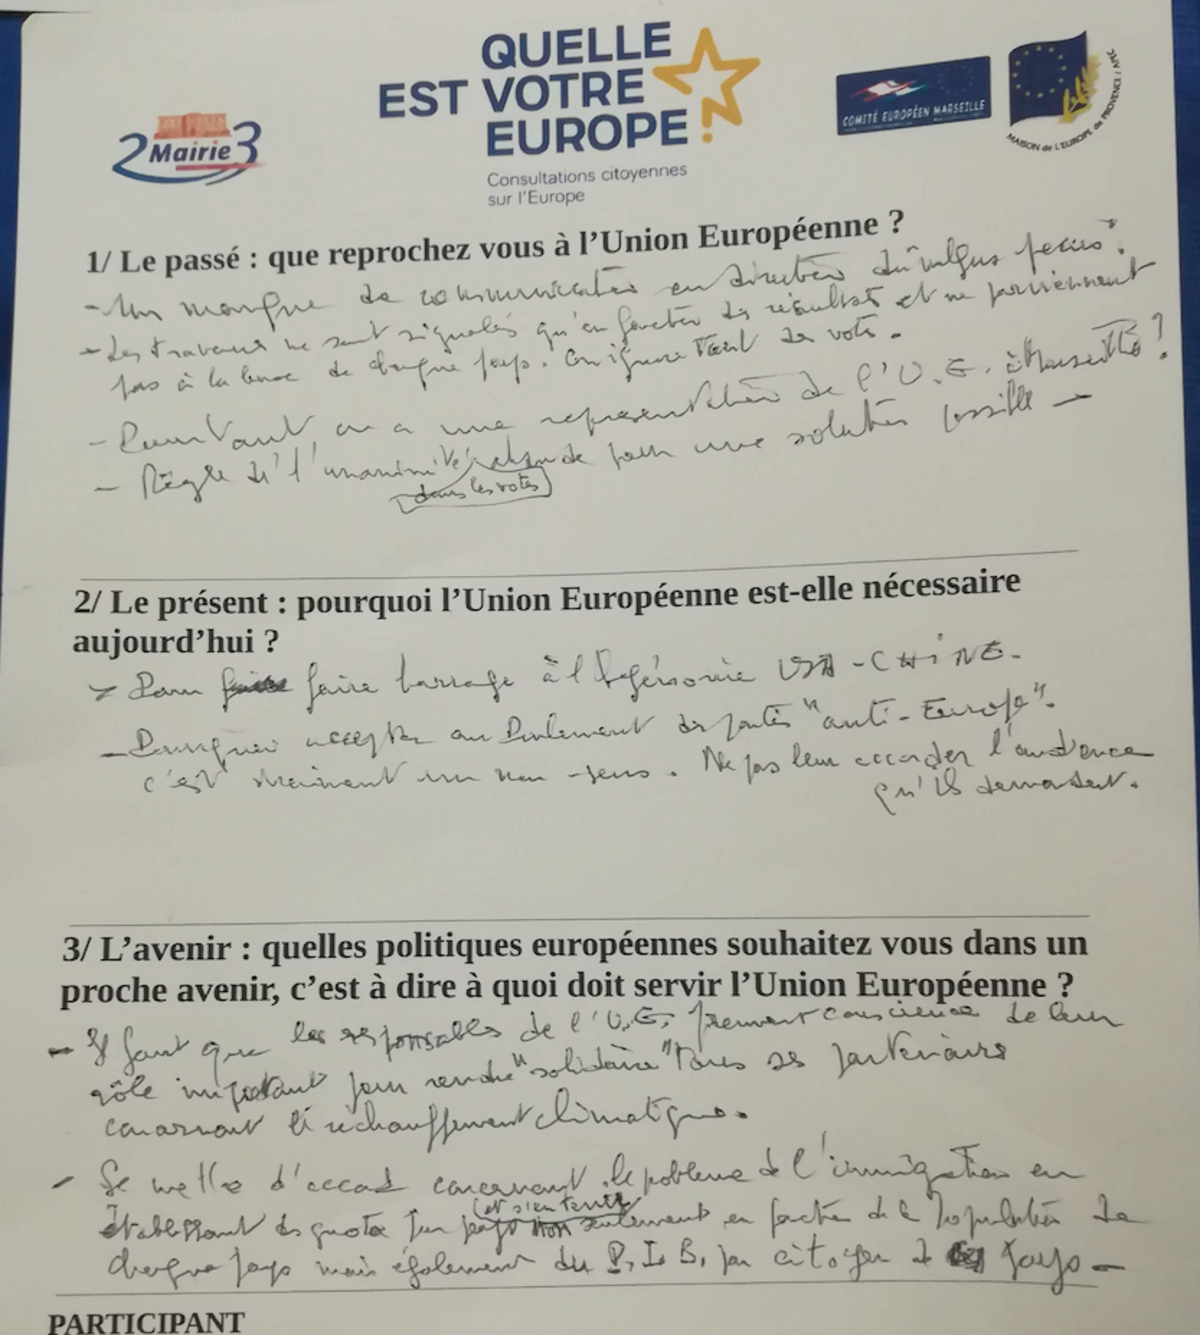 QUELLE
EST VOTRE
EUROPE ?
Consultations citoyennes
sur l'Europe
2 Mairie 3
COMITÉ EUROPÉEN MARSEILLE
MAISON de L'EUROPE de PROVENCE / APIC
1/ Le passé : que reprochez vous à l'Union Européenne ?
- Un manque de communication en direction du "vulgus pecus".
- Les travaux ne sont signalés qu'en fonction des résultats et ne parviennent
pas à la base de chaque pays. On ignore tout des votes.
- Pourtant, on a une représentation de l'U.E. à Marseille ?
- Règle de l'unanimité pour une solution possible -
(dans les votes)
2/ Le présent : pourquoi l'Union Européenne est-elle nécessaire
aujourd'hui ?
- Pour faire barrage à l'hégémonie USA - CHINE.
- Pourquoi accepter au Parlement des partis "anti-Europe".
c'est vraiment un non-sens. Ne pas leur accorder l'audience
qu'ils demandent.
3/ L'avenir : quelles politiques européennes souhaitez vous dans un
proche avenir, c'est à dire à quoi doit servir l'Union Européenne ?
- Il faut que les responsables de l'U.E. prennent conscience de leur
rôle important pour rendre "solidaire" tous ses partenaires
concernant le réchauffement climatique.
- Se mettre d'accord concernant le problème de l'immigration en
(et s'en tenir)
établissant des quotas par pays non seulement en fonction de la population de
chaque pays mais également du P.I.B. par citoyen de pays -
PARTICIPANT